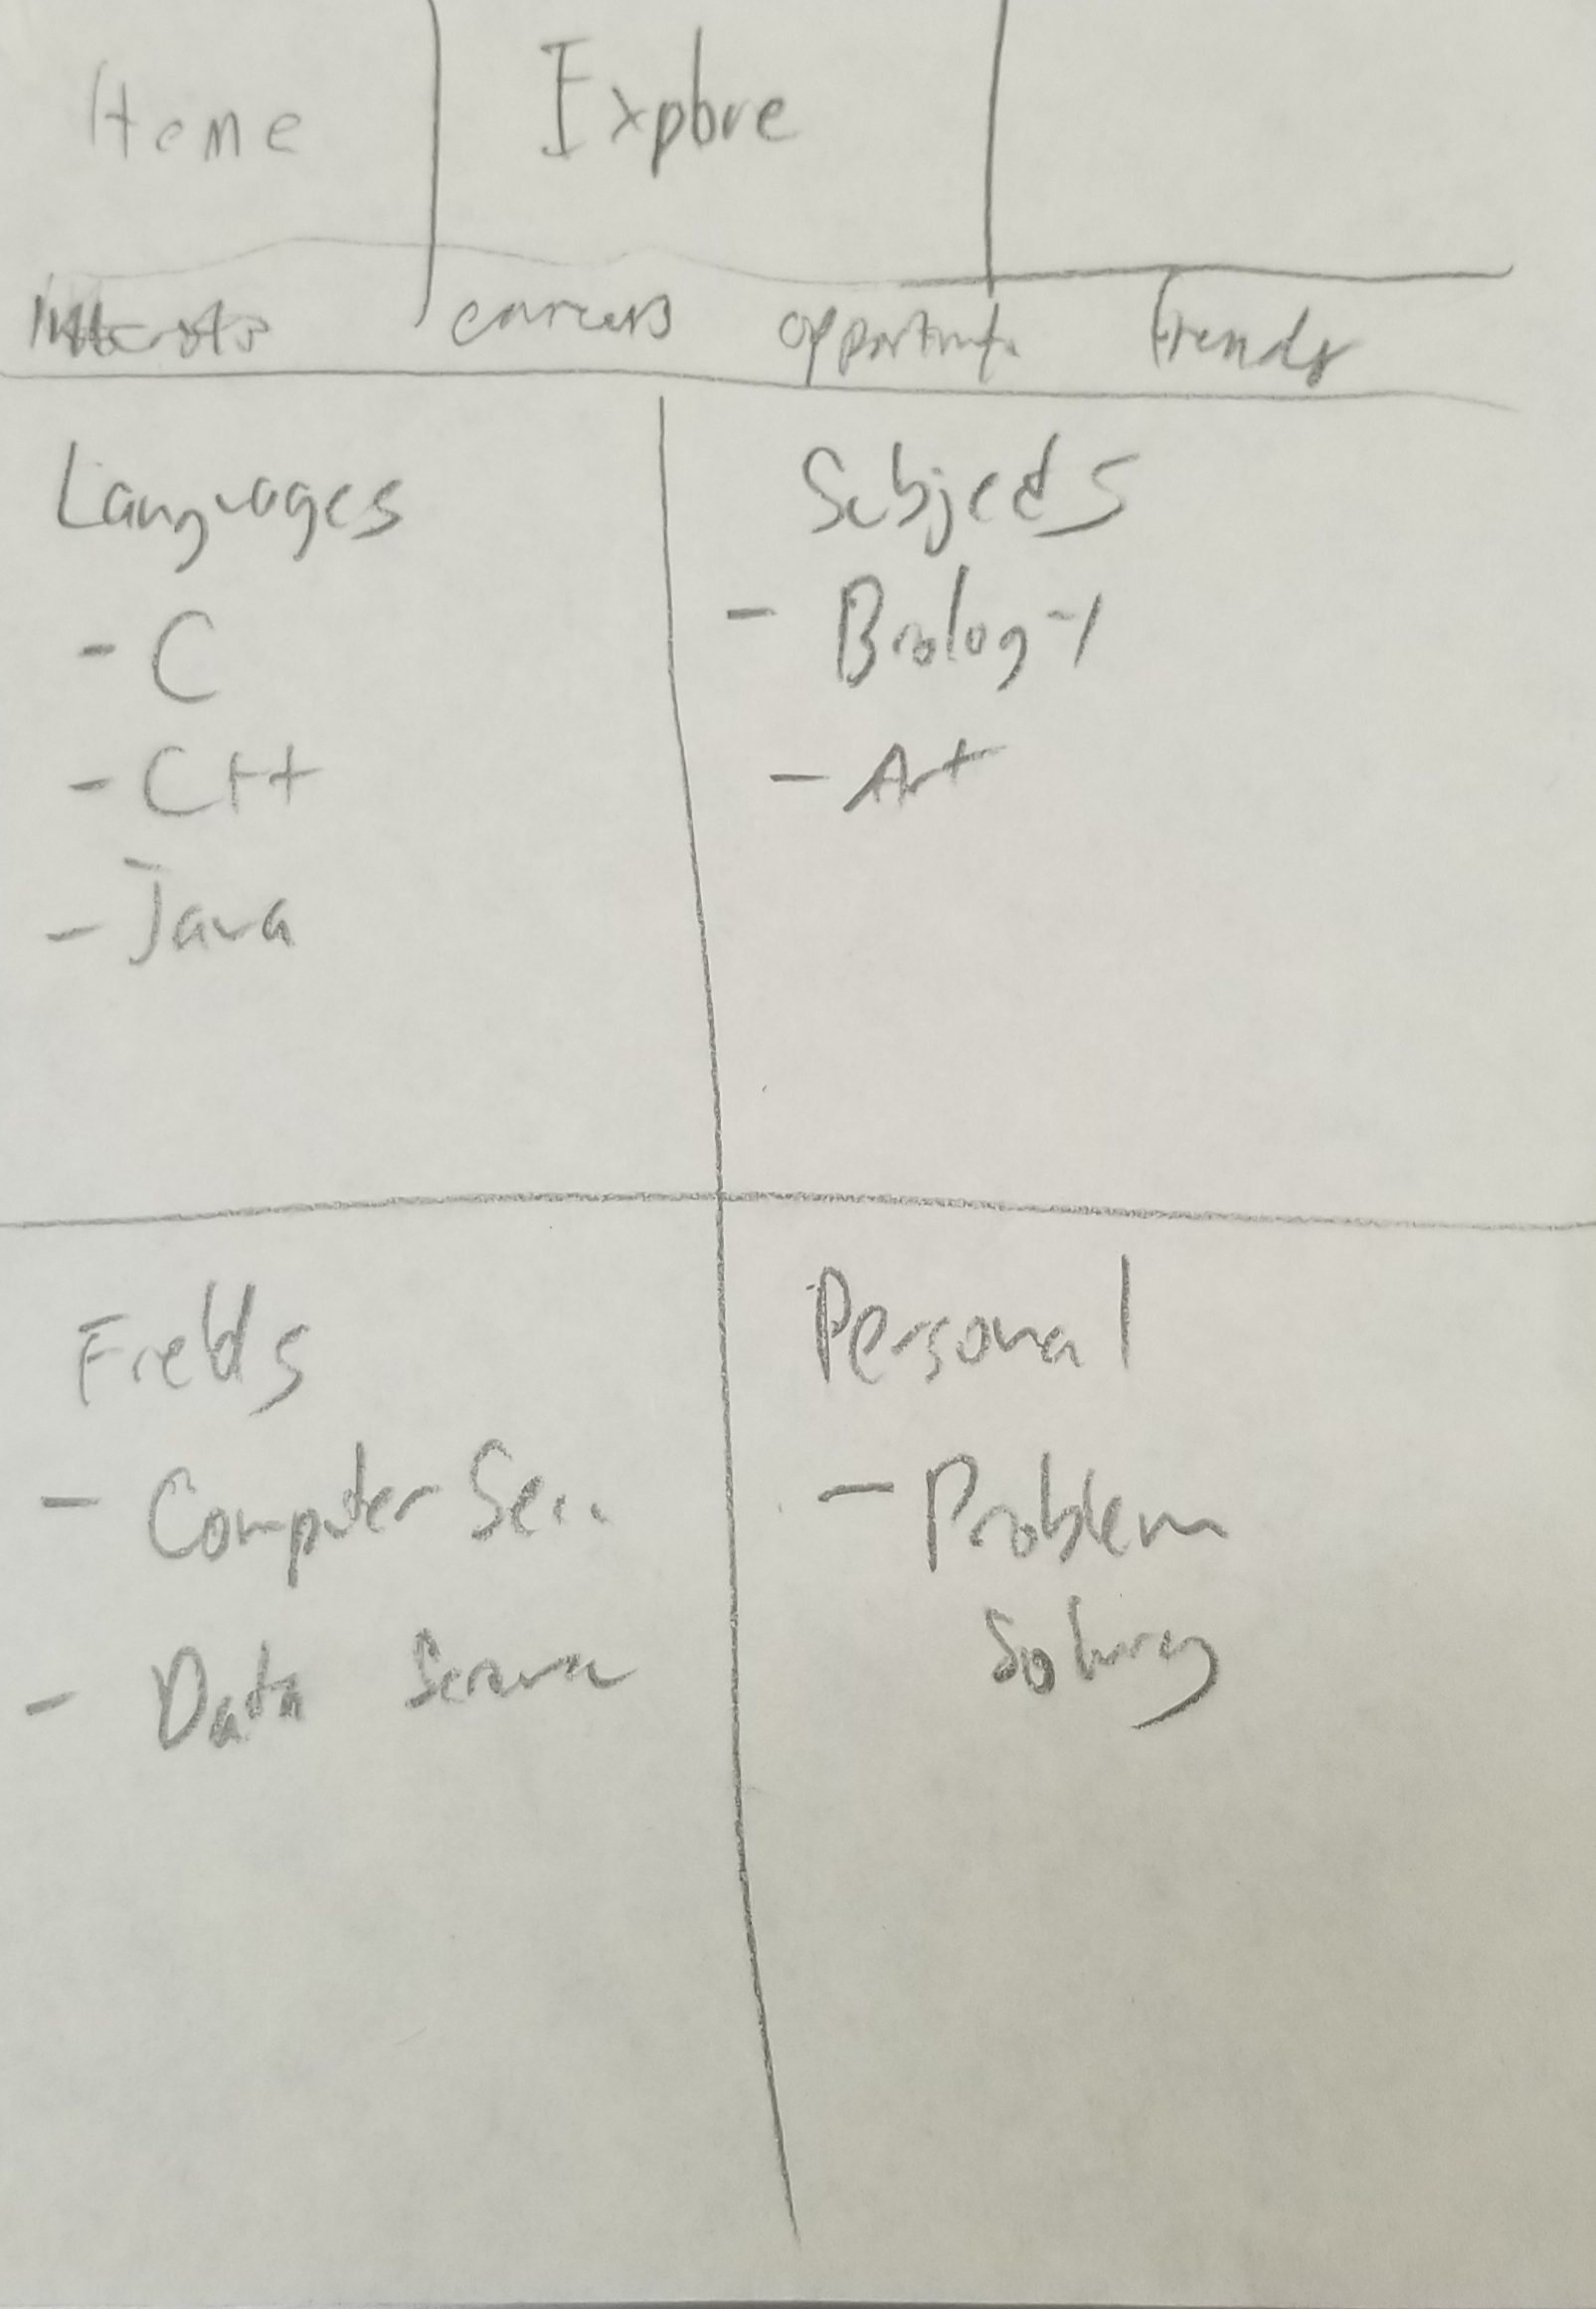 Home Explore
Interests careers opportunit. Trends
Languages
- C
- C++
- Java
Subjects
- Biology
- Art
Fields
- Computer Sci..
- Data Science
Personal
- Problem
Solving